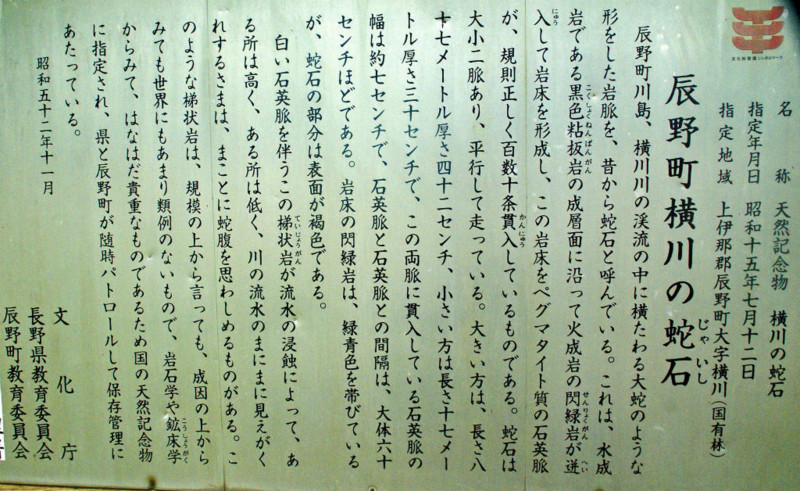 名称 天然記念物 横川の蛇石
指定年月日 昭和十五年七月十二日
指定地域 上伊那郡辰野町大字横川(国有林)
辰野町横川の蛇石
じゃいし
辰野町川島、横川川の渓流の中に横たわる大蛇のような
形をした岩脈を、昔から蛇石と呼んでいる。これは、水成
岩である黒色粘板岩の成層面に沿って火成岩の閃緑岩が迸
こくしょくねんばんがん せんりょくがん へい
入して岩床を形成し、この岩床をペグマタイト質の石英脈
にゅう
が、規則正しく百数十条貫入しているものである。蛇石は
かんにゅう
大小二脈あり、平行して走っている。大きい方は、長さ八
十七メートル厚さ四十二センチ、小さい方は長さ十七メー
トル厚さ三十センチで、この両脈に貫入している石英脈の
幅は約七センチで、石英脈と石英脈との間隔は、大体六十
センチほどである。岩床の閃緑岩は、緑青色を帯びている
が、蛇石の部分は表面が褐色である。
白い石英脈を伴うこの梯状岩が流水の浸蝕によって、あ
ていじょうがん
る所は高く、ある所は低く、川の流水のまにまに見えがく
れするさまは、まことに蛇腹を思わしめるものがある。こ
のような梯状岩は、規模の上から言っても、成因の上から
みても世界にもあまり類例のないもので、岩石学や鉱床学
こうしょうがく
からみて、はなはだ貴重なものであるため国の天然記念物
に指定され、県と辰野町が随時パトロールして保存管理に
あたっている。
昭和五十二年十一月
文化庁
長野県教育委員会
辰野町教育委員会